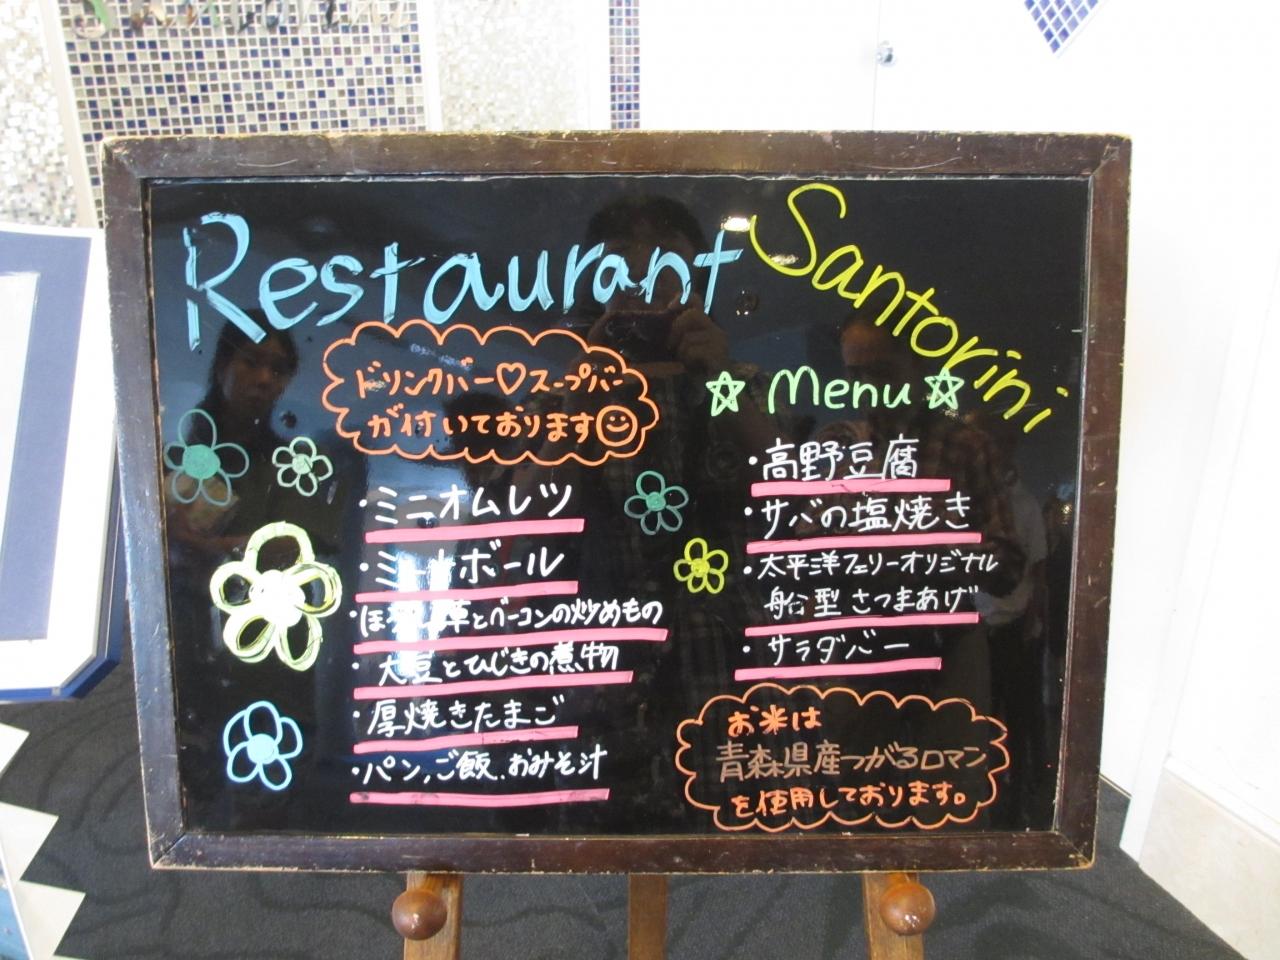 Restaurant Santorini
ドリンクバー♡スープバー
が付いております☺
☆ Menu ☆
・ミニオムレツ
・ミートボール
・ほうれん草とベーコンの炒めもの
・大豆とひじきの煮物
・厚焼きたまご
・パン、ご飯、おみそ汁
・高野豆腐
・サバの塩焼き
・太平洋フェリーオリジナル
船型さつまあげ
・サラダバー
お米は
青森県産つがるロマン
を使用しております。